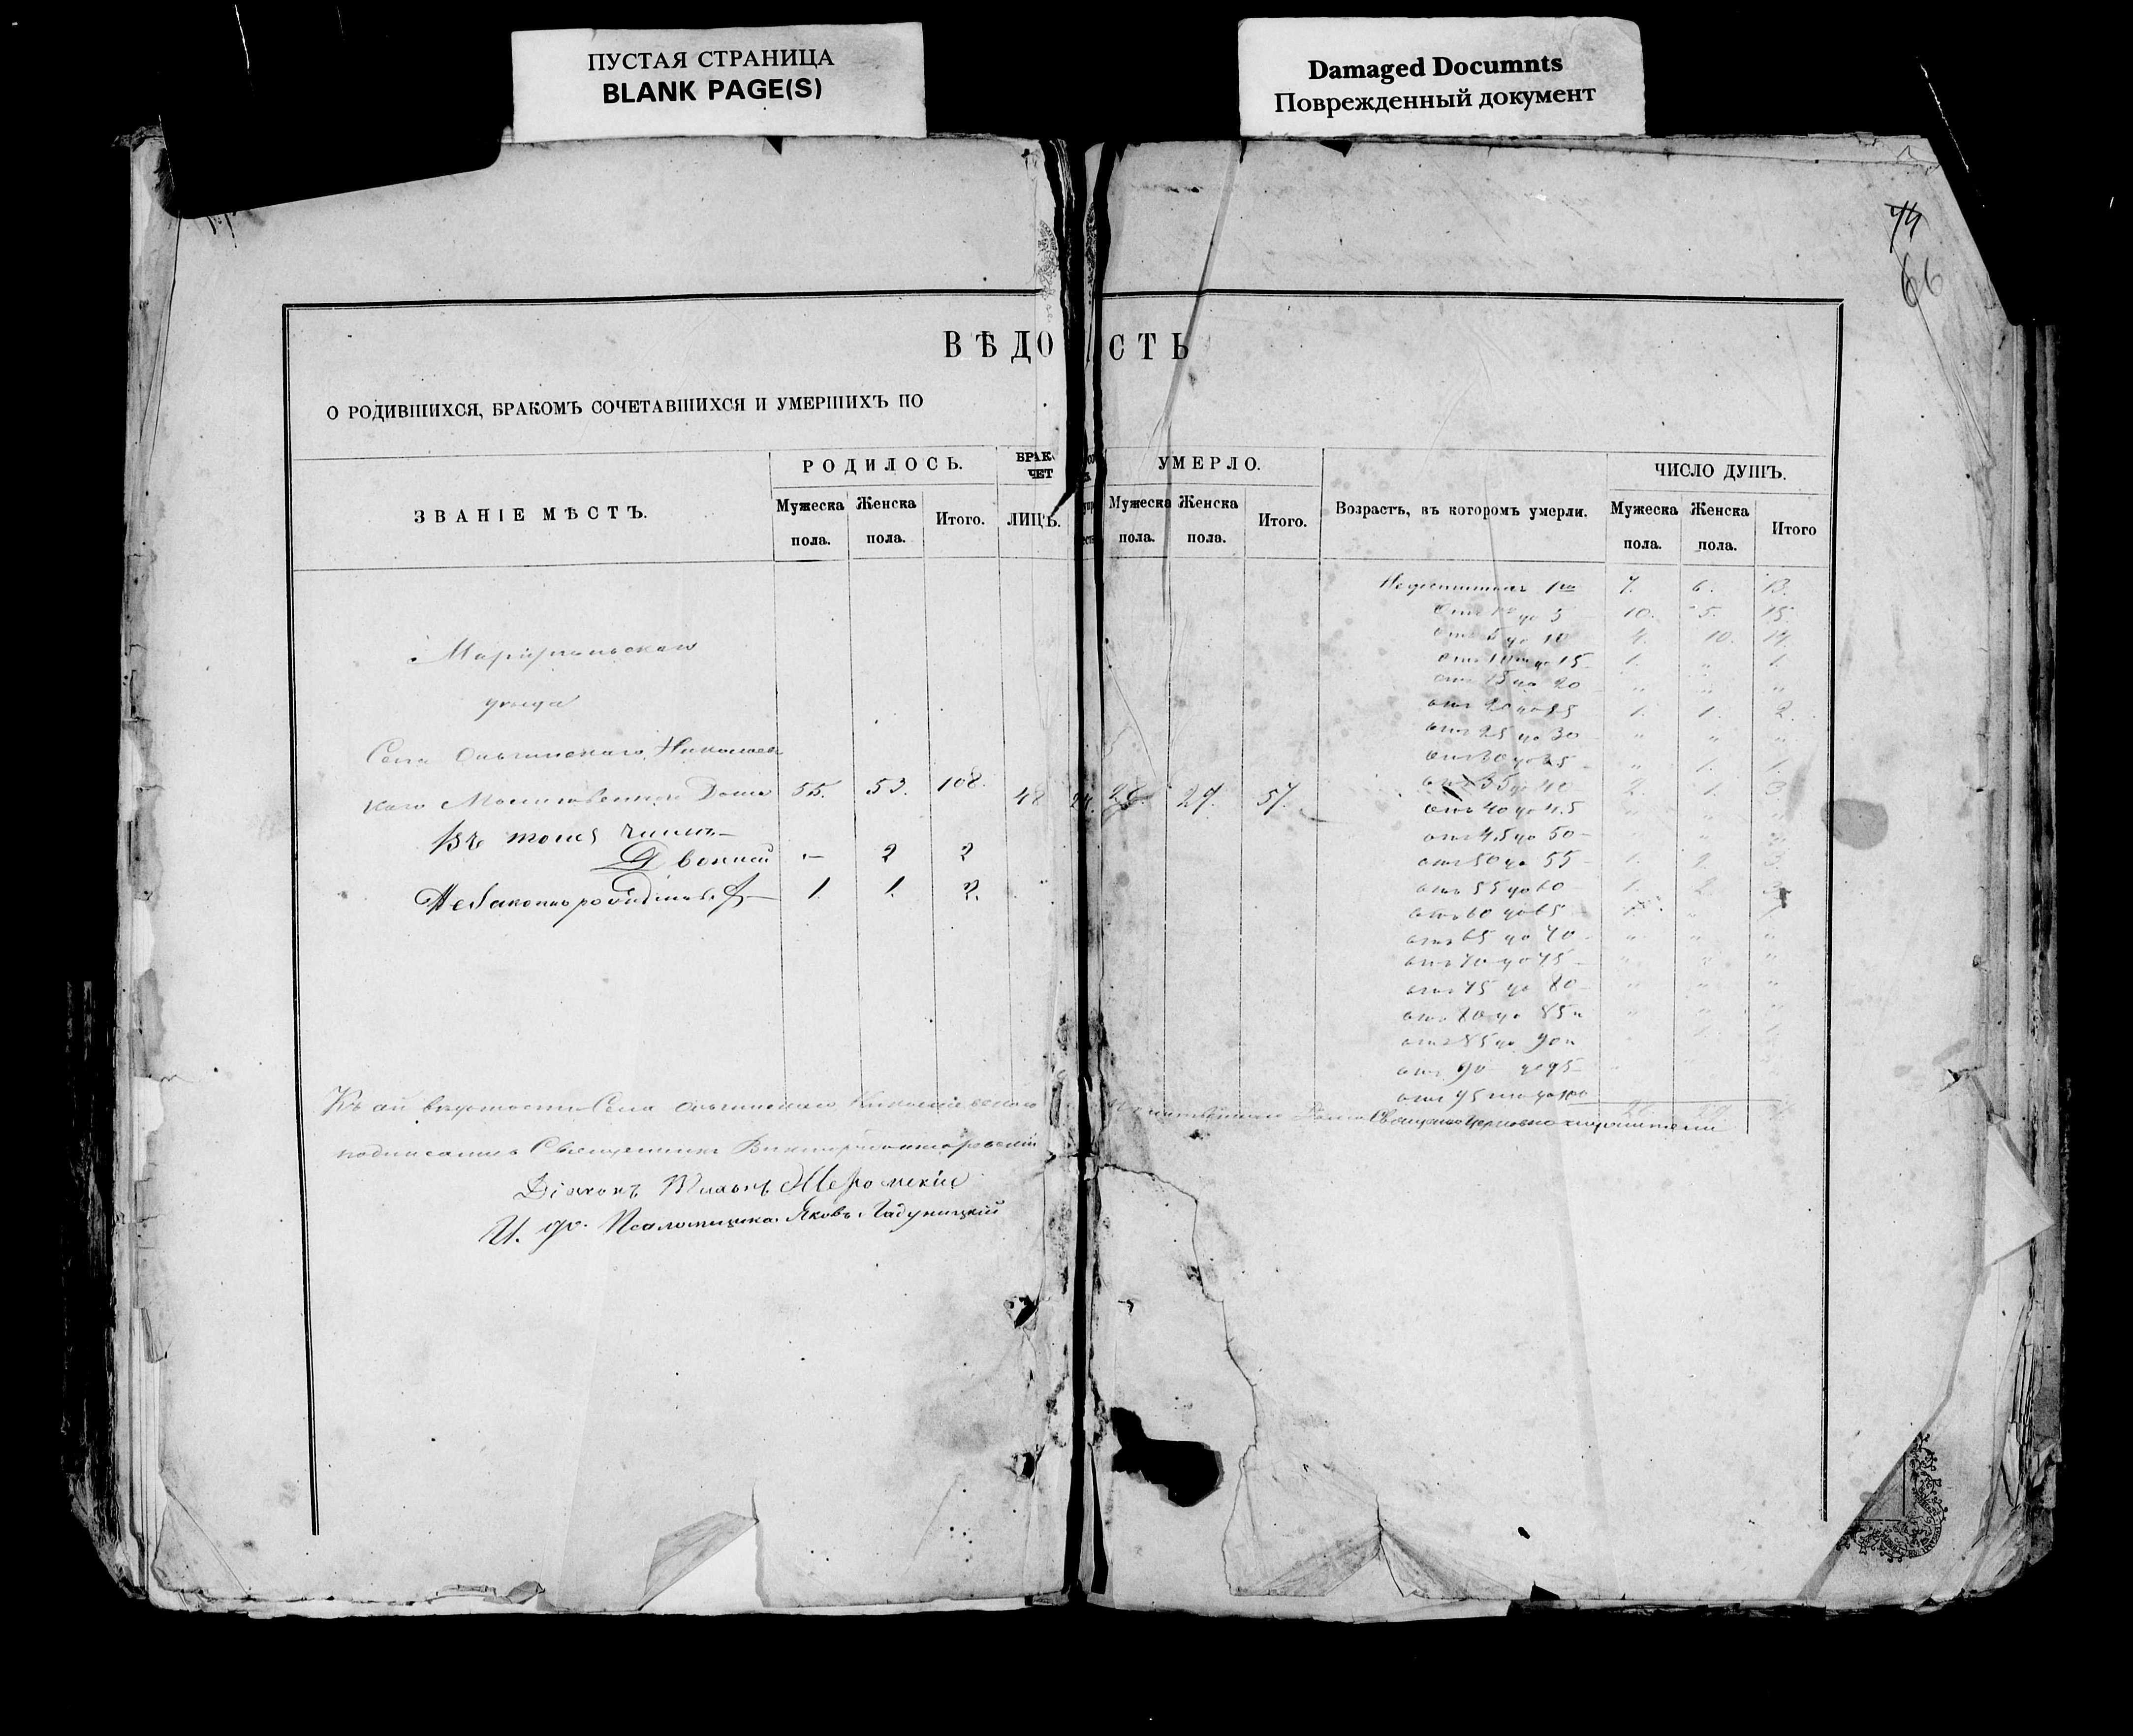 ПУСТАЯ СТРАНИЦА
BLANK PAGE(S)
Damaged Documnts
Поврежденный документ
74
66
ВѢДО СТЬ
О РОДИВШИХСЯ, БРАКОМЪ СОЧЕТАВШИХСЯ И УМЕРШИХЪ ПО
ЗВАНІЕ МѢСТЪ.
РОДИЛОСЬ.
Мужеска пола.
Женска пола.
Итого.
БРАК
ЧЕТ
ЛИЦЪ.
УМЕРЛО.
Мужеска пола.
Женска пола.
Итого.
Возрастъ, въ которомъ умерли.
ЧИСЛО ДУШЪ.
Мужеска пола.
Женска пола.
Итого
Маріупольскаго
уѣзда
Села Ольгинскаго, Николаев
каго Молитвеннаго Дома 55. 53. 108. 48 24. 28. 29. 57.
Въ томъ числѣ
Двойни — 2 2
Незаконнорожденныхъ 1. 1. 2.
Недостигшихъ 1го 7. 6. 13.
отъ 1го до 5 10. 5. 15.
отъ 5 до 10 4. 10. 14.
отъ 10 до 15 1. " 1.
отъ 15 до 20 " " "
отъ 20 до 25 1. 1. 2.
отъ 25 до 30 " " "
отъ 30 до 35 " 1. 1.
отъ 35 до 40 2. 1. 3
отъ 40 до 45 " " "
отъ 45 до 50 " " "
отъ 50 до 55 1. 2. 3.
отъ 55 до 60 1. 2. 3
отъ 60 до 65 1. " 1
отъ 65 до 70 " " "
отъ 70 до 75 " " "
отъ 75 до 80 " " "
отъ 80 до 85 " " "
отъ 85 до 90 1. 1.
отъ 90 до 95
отъ 95 до 100
Къ сей вѣдомости Села Ольгинскаго Николаевскаго Молитвеннаго Дома Священно церковно служители
подписались Священникъ Викторъ
Діаконъ
И. до. Псаломщика Яковъ Ладуницкій